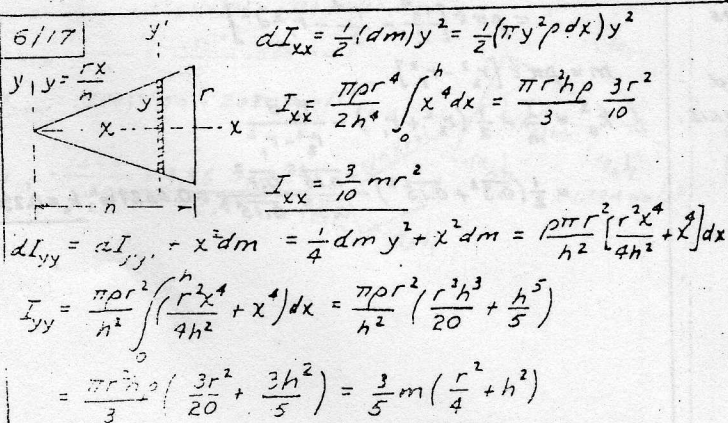 6/17
y'
dI_xx = ½(dm)y² = ½(πy²ρdx)y²
y y = rx/h
y r
x x
h
I_xx = πρr⁴/2h⁴ ∫₀ʰ x⁴dx = πr²hρ/3 3r²/10
I_xx = 3/10 mr²
dI_yy = dI_y'y' + x²dm = ¼ dm y² + x²dm = ρπr²/h² [r²x⁴/4h² + x⁴]dx
I_yy = πρr²/h² ∫₀ʰ (r²x⁴/4h² + x⁴)dx = πρr²/h² (r²h³/20 + h⁵/5)
= πr²hρ/3 (3r²/20 + 3h²/5) = 3/5 m(r²/4 + h²)